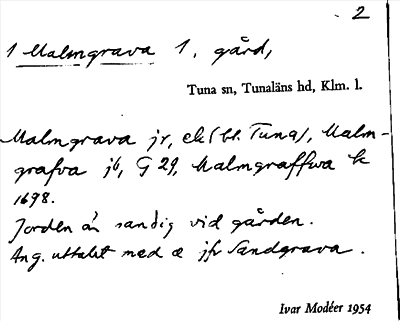 2
1 Malmgrava 1, gård,
Tuna sn, Tunaläns hd, Klm. l.
Malmgrava jr, ek (bl. Tuna), Malm-
grafva jb, G 29, Malmgraffwa k
1698.
Jorden är sandig vid gården.
Ang. uttalet med a jfr Sandgrava.
Ivar Modéer 1954